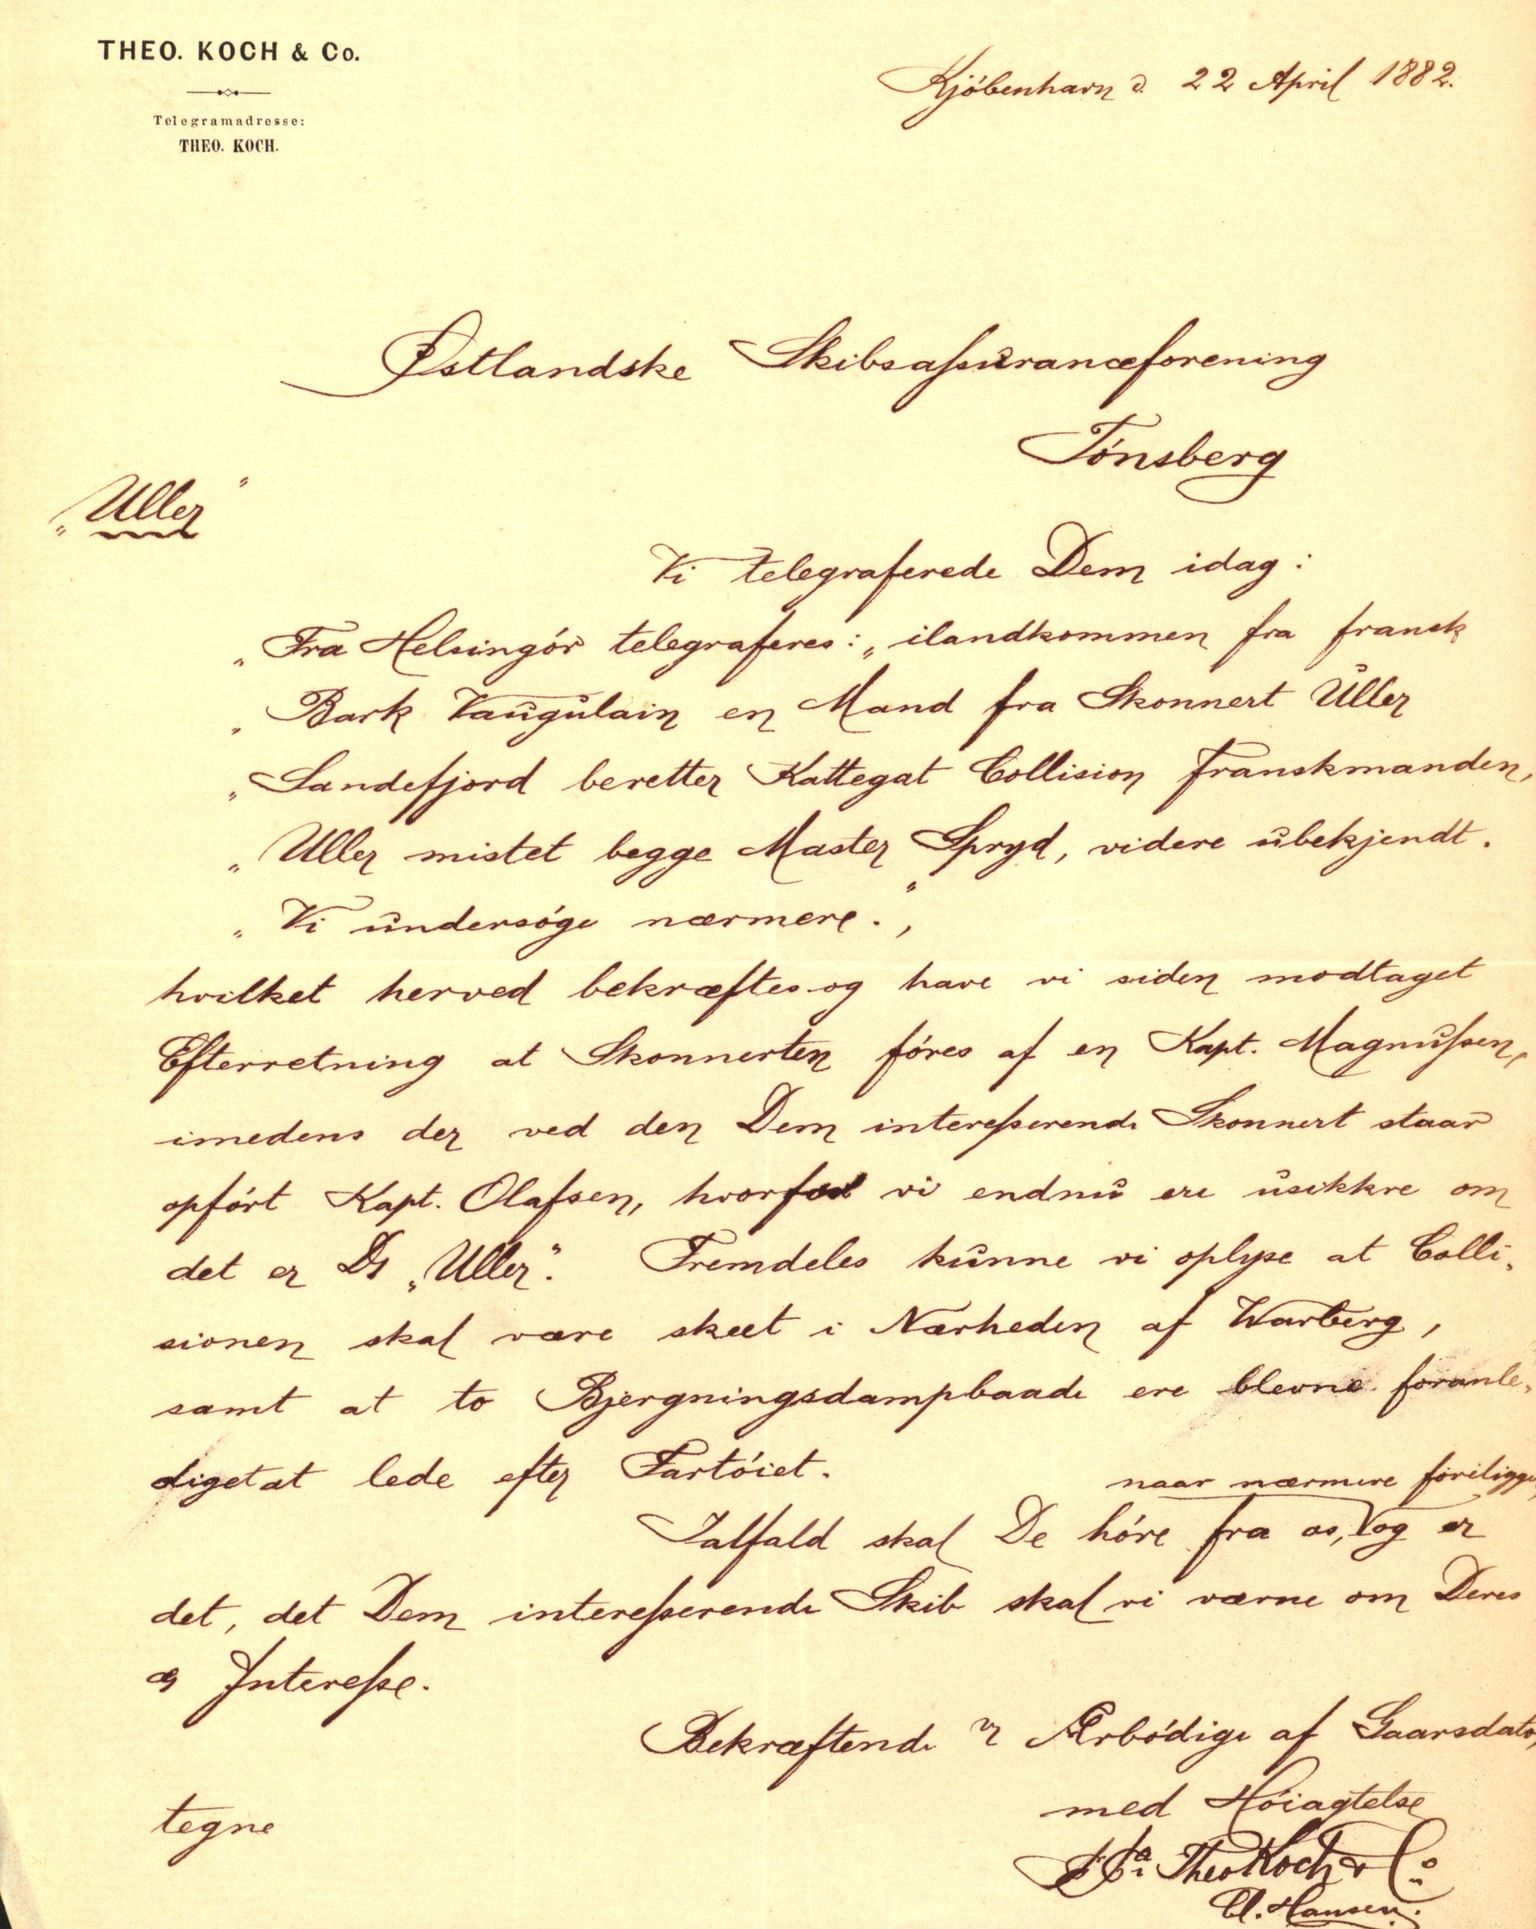 THEO. KOCH & Co.
Telegramadresse:
THEO. KOCH.
Kjöbenhavn d. 22 April 1882.
Østlandske Skibsassuranceforening
Tönsberg
"Uller"
Vi telegraferede Dem idag:
"Fra Helsingör telegraferes: "ilandkommen fra fransk
"Bark Vaugulain en Mand fra Skonnert Uller
"Sandefjord beretter Kattegat Collision Franskmanden,
"Uller mistet begge Master Spryd, videre ubekjendt.
"Vi undersöge nærmere.",
hvilket herved bekræftes og have vi siden modtaget
Efterretning at Skonnerten föres af en Kapt. Magnussen,
imedens der ved den Dem interesserende Skonnert staar
opfört Kapt. Olafsen, hvorfor vi endnu ere usikkre om
det er Ds "Uller". Fremdeles kunne vi oplyse at Colli-
sionen skal være skeet i Nærheden af Warberg,
samt at to Bjergningsdampbaade ere blevne foranle-
diget at lede efter Fartöiet.
naar nærmere foreligger,
Ialfald skal De höre fra os, og er
det, det Dem interesserende Skib skal vi værne om Deres
Interesse.
Bekræftende Ærbödige af Gaarsdato,
tegne
med Höiagtelse
Theo Koch & Co
Cl. Hansen.